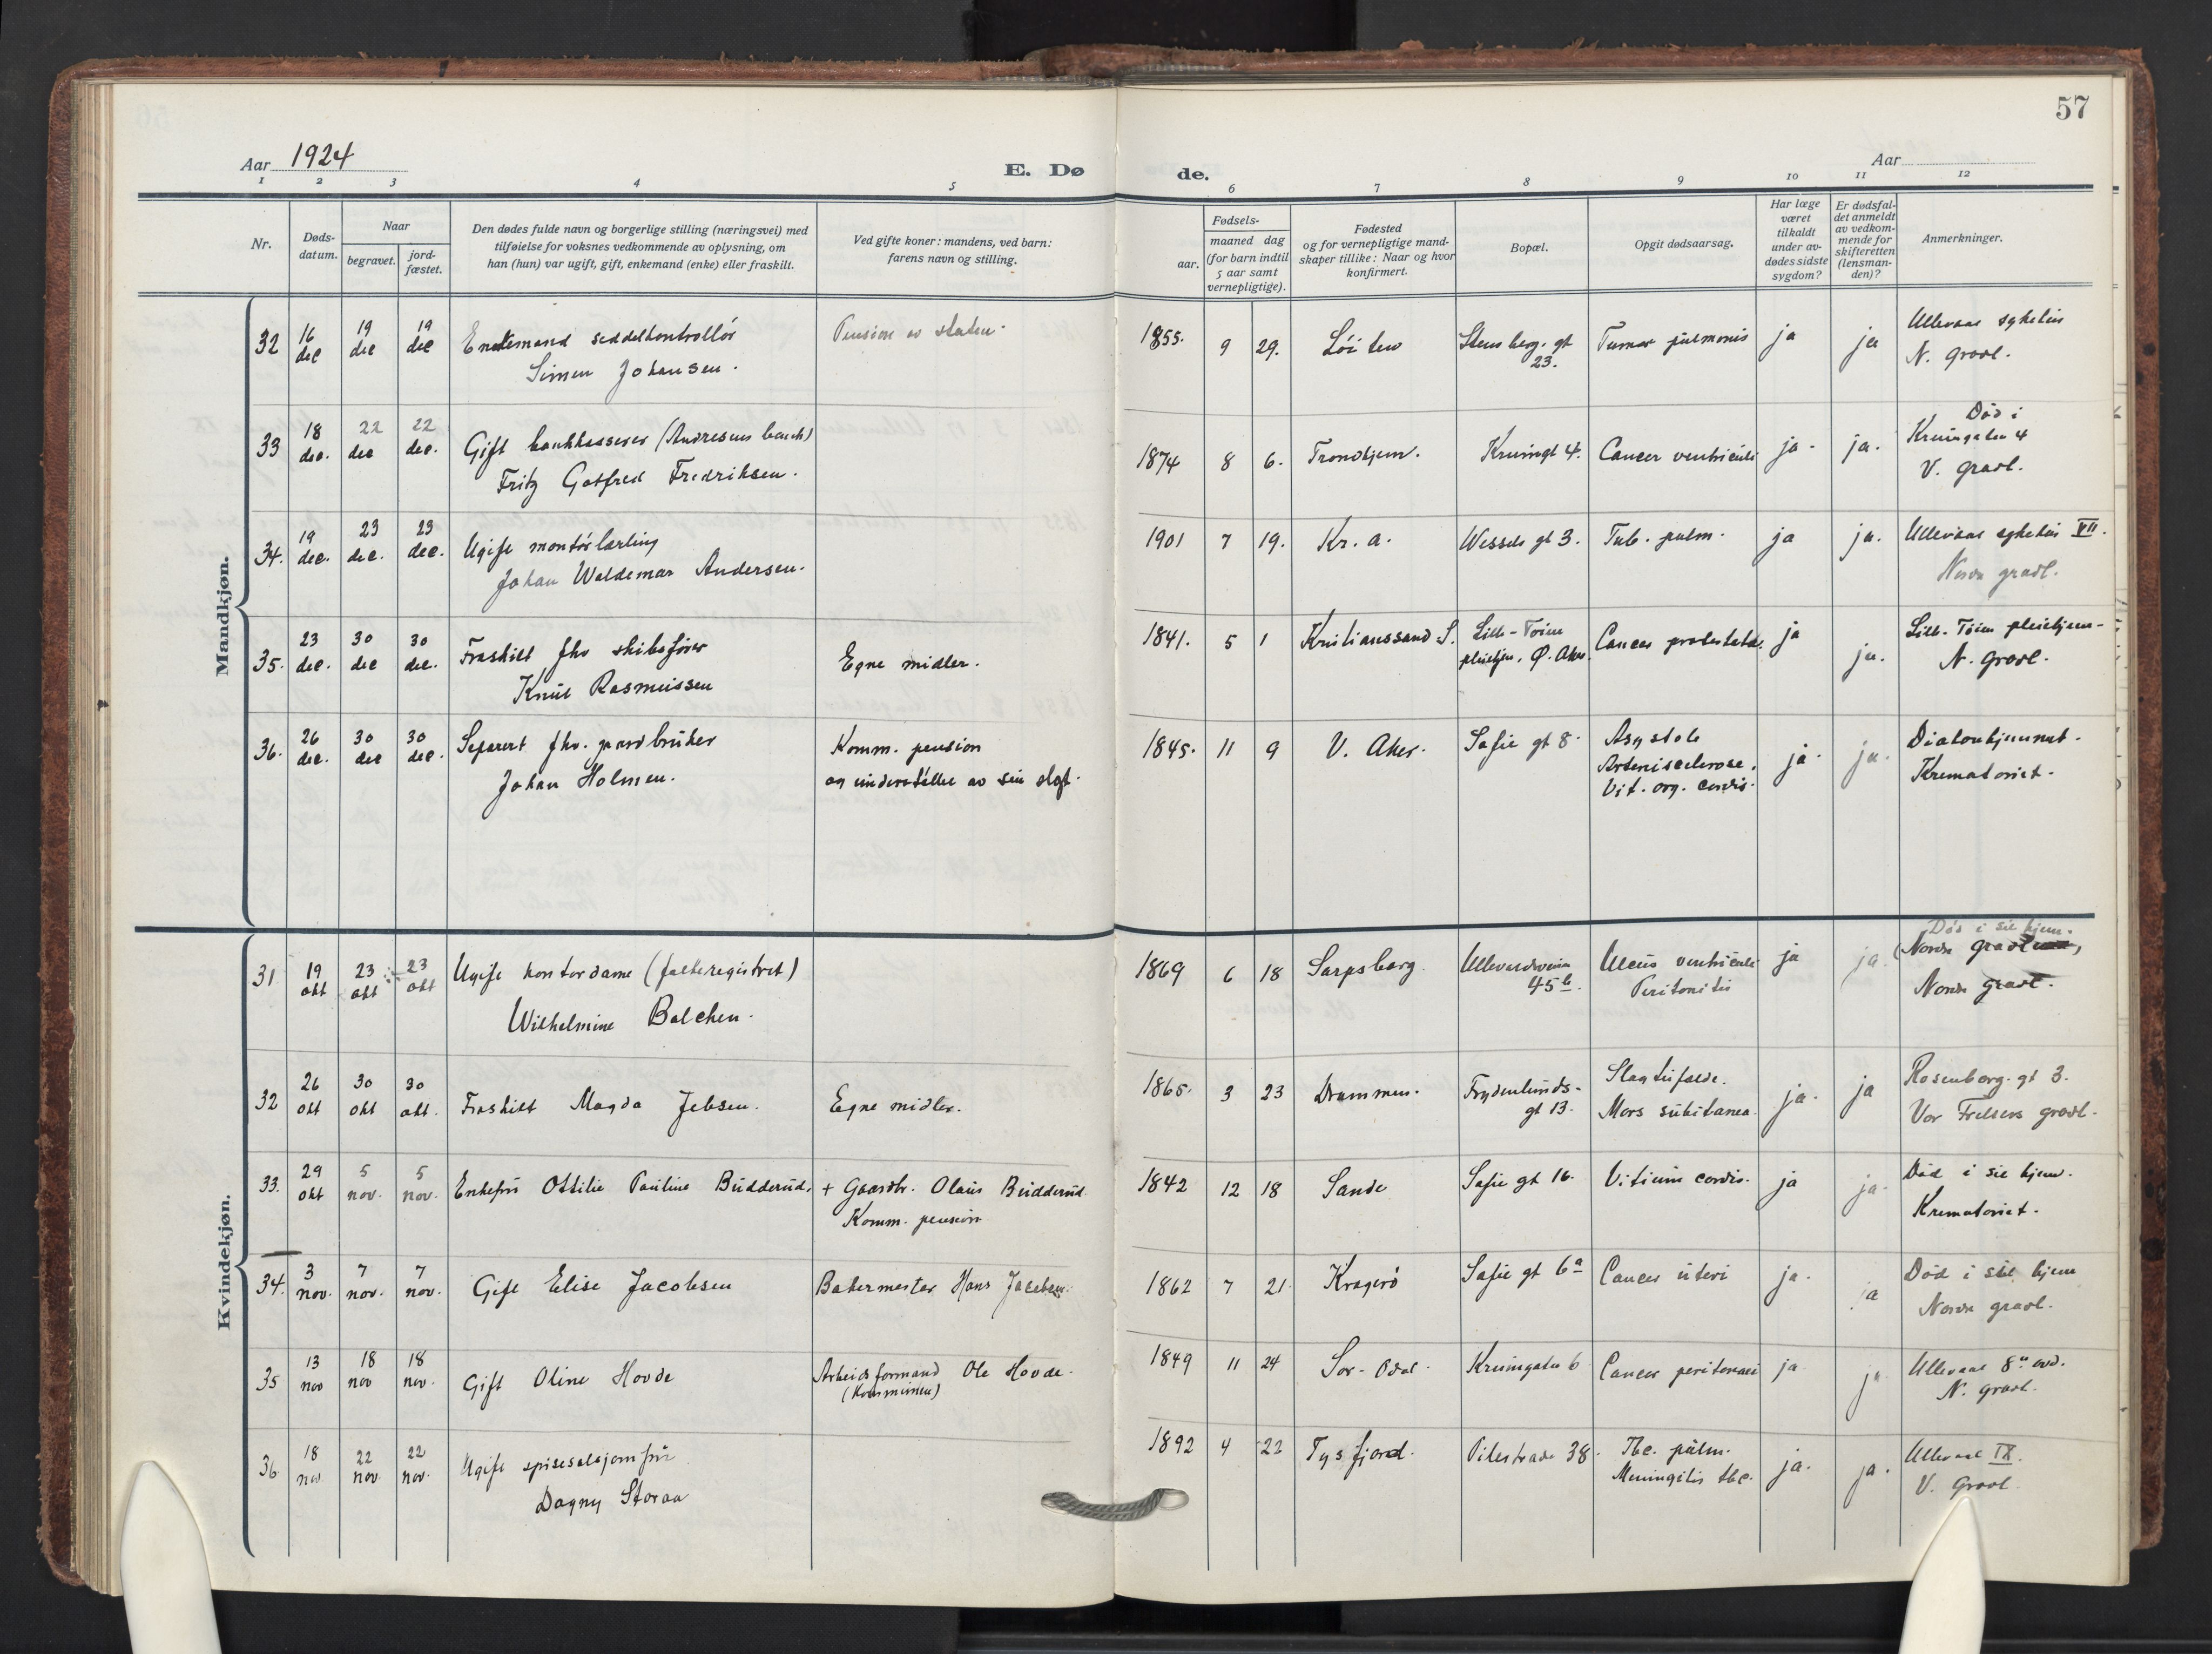 57
Aar 1924
E. Dø
de.
Aar
1 2 3 4 5 6 7 8 9 10 11 12
Nr.
Døds-
datum.
Naar
begravet.
jord-
fæstet.
Den dødes fulde navn og borgerlige stilling (næringsvei) med
tilføielse for voksnes vedkommende av oplysning, om
han (hun) var ugift, gift, enkemand (enke) eller fraskilt.
Ved gifte koner: mandens, ved barn:
farens navn og stilling.
Fødsels-
aar.
maaned dag
(for barn indtil
5 aar samt
vernepligtige).
Fødested
og for vernepligtige mand-
skaper tillike: Naar og hvor
konfirmert.
Bopæl.
Opgit dødsaarsag.
Har læge
været
tilkaldt
under av-
dødes sidste
sygdom?
Er dødsfal-
det anmeldt
av vedkom-
mende for
skifteretten
(lensman-
den)?
Anmerkninger.
Mandkjøn.
32
16
dec
19
dec
19
dec
Enkemand seddelkontrollør
Simen Johansen.
Pension av staten.
1855.
9
29.
Løiten
Stensberg. gt
23.
Tumor pulmonis
ja
ja
Ullevaal sykehus
N. gravl.
33
18
dec.
22
dec
22
dec.
Gift bankkasserer (Andresens bank)
Fritz Gotfred Fredriksen.
1874
8
6.
Trondhjem.
Krumgt 4.
Cancer ventriculi
ja.
ja.
Død i
Krumgaten 4
V. gravl.
34.
19
dec.
23
dec.
23
dec.
Ugift montørlærling
Johan Waldemar Andersen.
1901
7
19.
Kr. a.
Wessels gt 3.
Tub. pulm.
ja
ja.
Ullevaal sykehus VII.
Nordre gravl.
35.
23
dec.
30
dec
30
dec.
Fraskilt fhv skibsfører
Knut Rasmussen
Egne midler.
1841.
5
1
Kristianssand S.
Lille-Tøien
pleiehjem, Ø. Aker.
Cancer prostatae.
ja
ja.
Lille-Tøien pleiehjem-
N. gravl.
36.
26
dec.
30
dec
30
dec.
Separert fhv. gaardbruker
Johan Holmen.
Komm. pension
og understøttet av sin slegt.
1845.
11
9
V. Aker.
Sofie gt 8.
Asystole
Arteriosclerose.
Vit. org. cordis.
ja.
ja.
Diakonhjemmet.
Krematoriet.
Kvindekjøn.
31
19
okt
23
okt
23
okt
Ugift kontordame (folkeregistret)
Wilhelmine Balchen.
1869
6
18
Sarpsborg
Ullevaalsveien
45b.
Ulcus ventriculi
Peritonitis
ja
ja.
Død i sit hjem.
(Nordre gravlund,
Nordre gravl.
32
26
okt
30
okt
30
okt.
Fraskilt Magda Jebsen.
Egne midler.
1865.
3
23
Drammen.
Frydenlunds-
gt 13.
Slagtilfælde.
Mors subitanea.
ja.
ja
Rosenborg. gt 3.
Vor Frelsers gravl.
33.
29
okt
5
nov.
5
nov.
Enkefru Ottilie Pauline Budderud.
+ Gaardbr. Olaus Budderud.
Komm. pension
1842
12
18
Sande
Sofie gt 16.
Vitium cordis.
ja
ja.
Død i sit hjem.
Krematoriet.
34.
3
nov.
7
nov.
7
nov.
Gift Elise Jacobsen
Bakermester Hans Jacobsen.
1862
7
21.
Kragerø
Sofie gt 6a
Cancer uteri
ja.
ja
Død i sit hjem
Nordre gravl.
35
13
nov
18
nov
18
nov.
Gift Oline Hovde
Arbeidsformand Ole Hovde.
(Kommunen)
1849
11
24
Sør-Odal.
Krumgaten 6
Cancer peritonaei
ja.
ja
Ullevaal 8de avd.
N. gravl.
36
18
nov.
22
nov.
22
nov.
Ugift spisesalsjomfru
Dagny Storaa
1892
4
22
Tysfjord.
Pilestrædet 38.
Tbc. pulm.
Meningitis tbc.
ja.
ja.
Ullevaal IX.
V. Gravl.